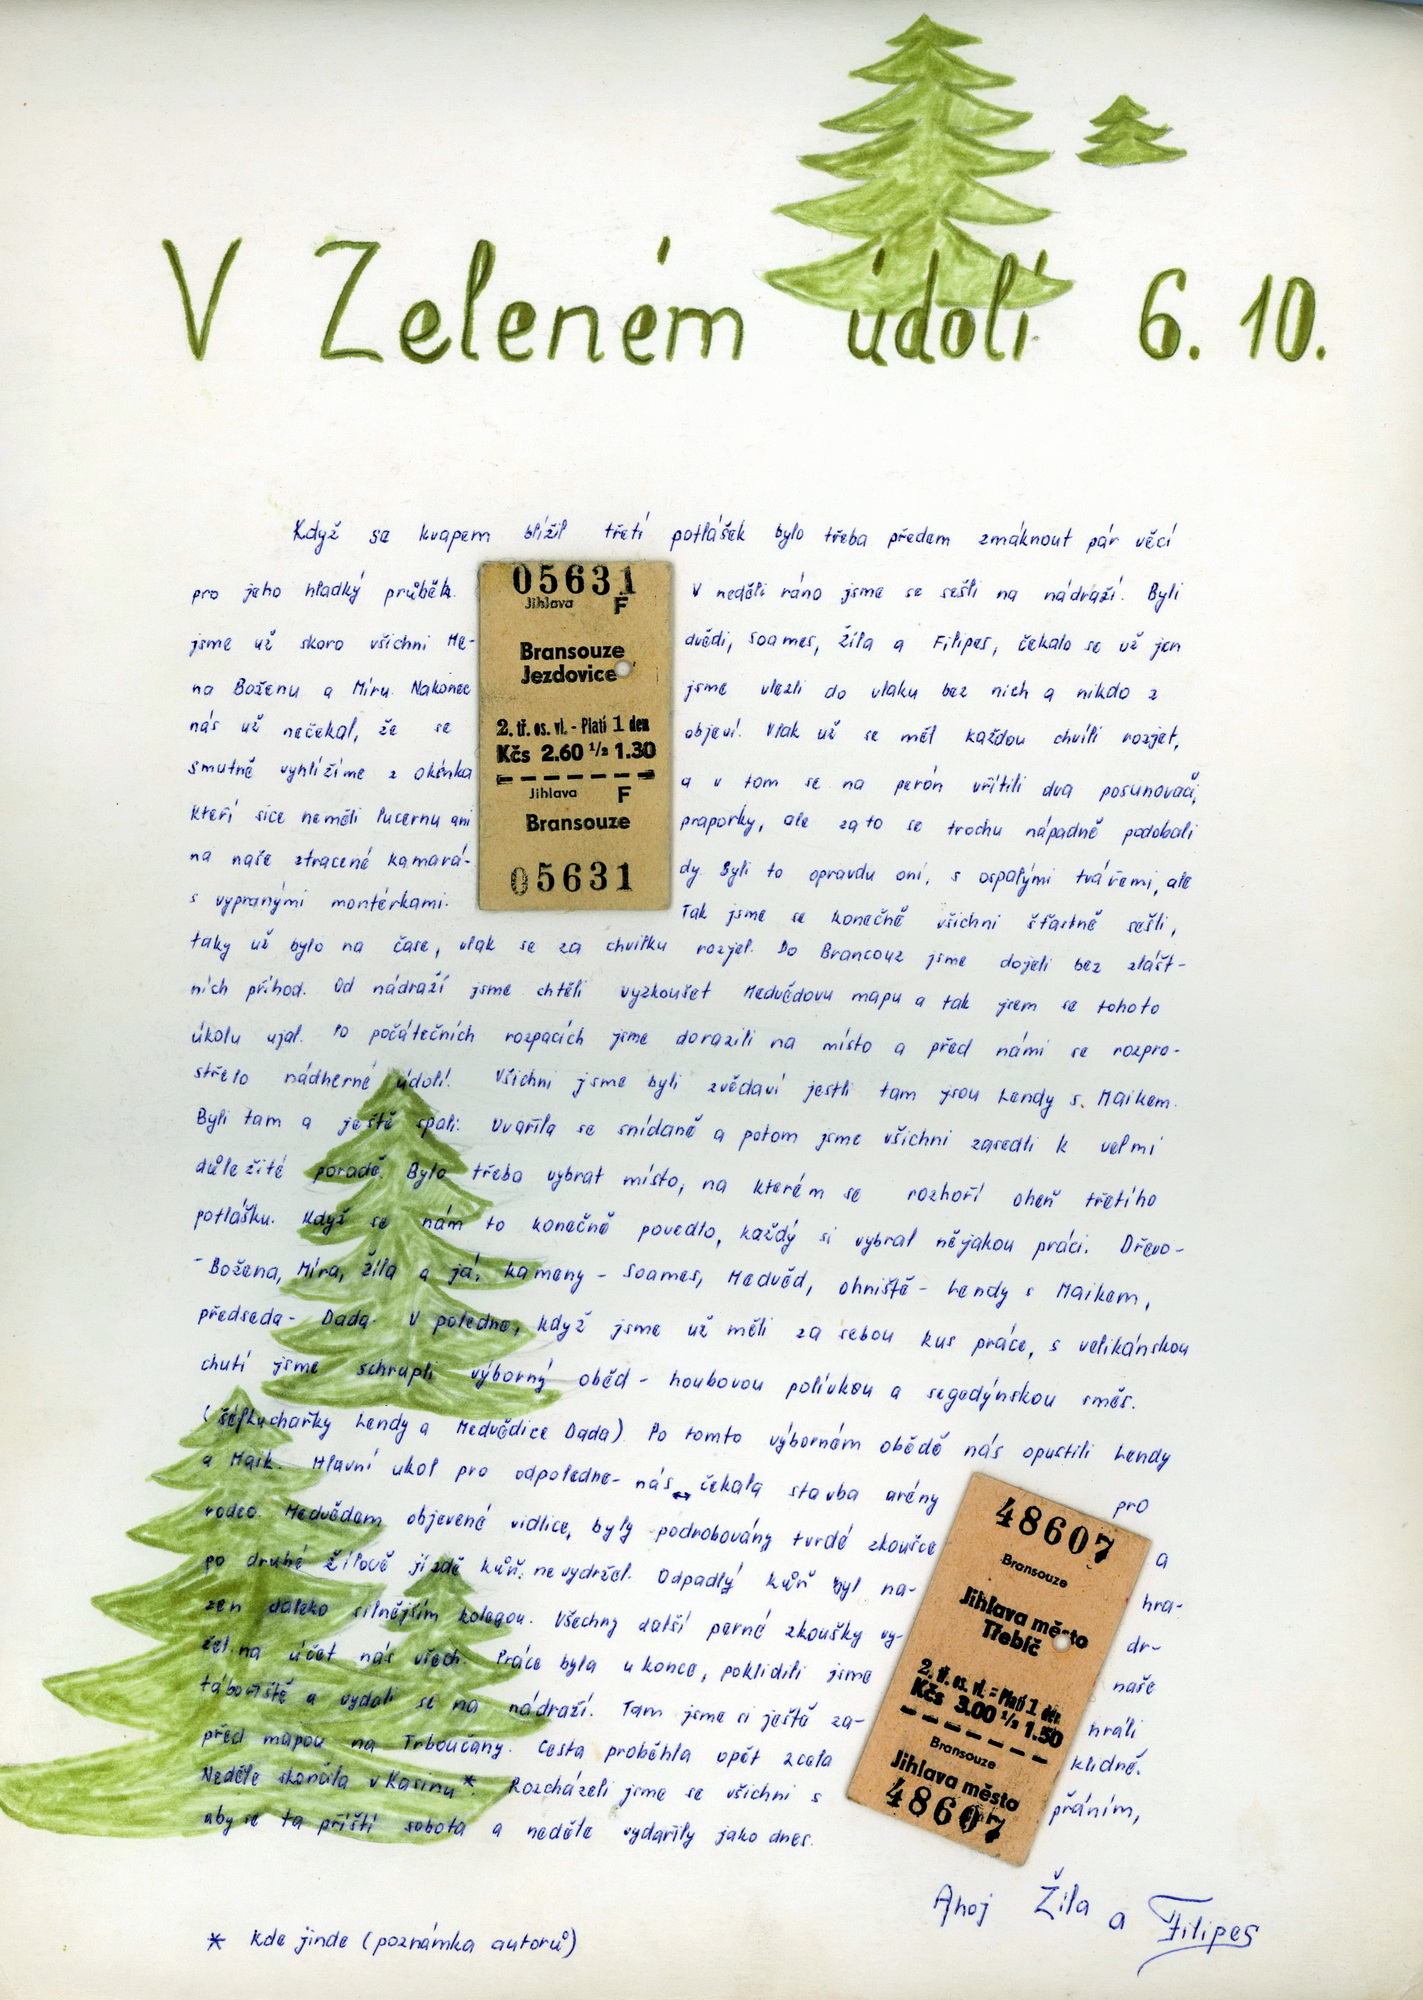 V Zeleném údolí 6. 10.
Když se kvapem blížil třetí potlášek bylo třeba předem zmáknout pár věcí
pro jeho hladký průběh. V neděli ráno jsme se sešli na nádraží. Byli
jsme už skoro všichni Me- dvědi, Soames, Žíla a Filipes, čekalo se už jen
na Boženu a Míru. Nakonec jsme vlezli do vlaku bez nich a nikdo z
nás už nečekal, že se objeví. Vlak už se měl každou chvíli rozjet,
smutně vyhlížíme z okénka a v tom se na perón vřítili dva posunovači,
kteří sice neměli lucernu ani praporky, ale za to se trochu nápadně podobali
na naše ztracené kamará- dy. Byli to opravdu oni, s ospalými tvářemi, ale
s vypranými montérkami. Tak jsme se konečně všichni šťastně sešli,
taky už bylo na čase, vlak se za chvilku rozjel. Do Brancouz jsme dojeli bez zlášt-
ních příhod. Od nádraží jsme chtěli vyzkoušet Medvědovu mapu a tak jsem se tohoto
úkolu ujal. Po počátečních rozpacích jsme dorazili na místo a před námi se rozpro-
střelo nádherné údolí. Všichni jsme byli zvědaví jestli tam jsou Lendy s Maikem.
Byli tam a ještě spali. Uvařila se snídaně a potom jsme všichni zasedli k velmi
důležité poradě. Bylo třeba vybrat místo, na kterém se rozhoří oheň třetího
potlášku. Když se nám to konečně povedlo, každý si vybral nějakou práci. Dřevo-
- Božena, Míra, Žíla a já, kameny - Soames, Medvěd, ohniště - Lendy s Maikem,
předseda - Dada. V poledne, když jsme už měli za sebou kus práce, s velikánskou
chutí jsme schrupli výborný oběd - houbovou polívkou a segedýnskou směs.
(šéfkuchařky Lendy a Medvědice Dada). Po tomto výborném obědě nás opustili Lendy
a Maik. Hlavní ukol pro odpoledne - nás ↔ čekala stavba arény pro
rodeo. Medvědem objevené vidlice, byly podrobovány tvrdé zkoušce a
po druhé Žílově jízdě kůň nevydržel. Odpadlý kůň byl na- hra-
zen daleko silnějším kolegou. Všechny další perné zkoušky vy- dr-
žel na účet nás všech. Práce byla u konce, poklidili jsme naše
tábořiště a vydali se na nádraží. Tam jsme si ještě za- hráli
před mapou na Trboučany. Cesta proběhla opět zcela klidně.
Neděle skončila v Kasinu* Rozcházeli jsme se všichni s přáním,
aby se ta příští sobota a neděle vydařily jako dnes.
Ahoj Žíla a Filipes
* Kde jinde (poznámka autorů)
05631
Jihlava F
Bransouze
Jezdovice
2. tř. os. vl. - Platí 1 den
Kčs 2.60 1/2 1.30
Jihlava F
Bransouze
05631
48607
Bransouze
Jihlava město
Třebíč
2. tř. os. vl. - Platí 1 den
Kčs 3.00 1/2 1.50
Bransouze
Jihlava město
48607